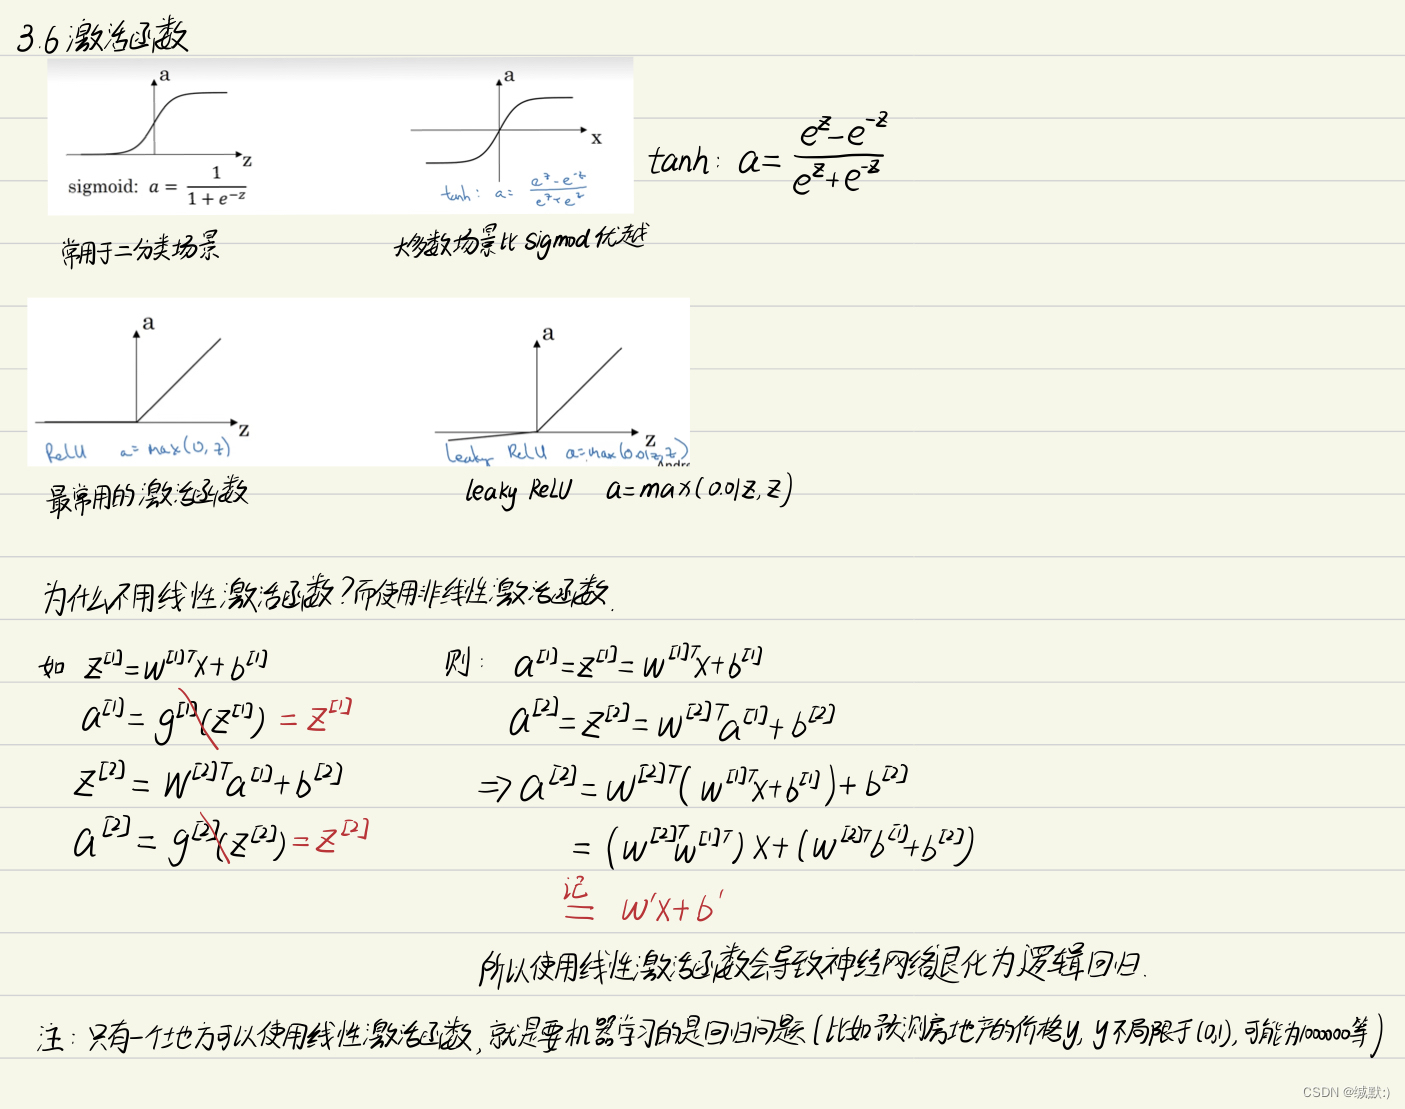 3.6 激活函数
a
z
sigmoid: a = 1 / (1 + e^{-z})
a
x
tanh: a = (e^z - e^{-z}) / (e^z + e^{-z})
tanh: a = (e^z - e^{-z}) / (e^z + e^{-z})
常用于二分类场景
大多数场景比 sigmod 优越
a
z
ReLU a = max(0, z)
a
z
leaky ReLU a = max(0.01z, z)
Andre
最常用的激活函数
leaky ReLU a = max(0.01z, z)
为什么不用线性激活函数?而使用非线性激活函数.
如 z^{[1]} = w^{[1]T}x + b^{[1]}
a^{[1]} = g^{[1]}(z^{[1]}) = z^{[1]}
z^{[2]} = w^{[2]T}a^{[1]} + b^{[2]}
a^{[2]} = g^{[2]}(z^{[2]}) = z^{[2]}
则: a^{[1]} = z^{[1]} = w^{[1]T}x + b^{[1]}
a^{[2]} = z^{[2]} = w^{[2]T}a^{[1]} + b^{[2]}
=> a^{[2]} = w^{[2]T}(w^{[1]T}x + b^{[1]}) + b^{[2]}
= (w^{[2]T}w^{[1]T})x + (w^{[2]T}b^{[1]} + b^{[2]})
记
= w'x + b'
所以使用线性激活函数会导致神经网络退化为逻辑回归.
注: 只有一个地方可以使用线性激活函数, 就是要机器学习的是回归问题 (比如预测房地产的价格y, y不局限于(0,1), 可能为1000000等)
CSDN @缄默:)